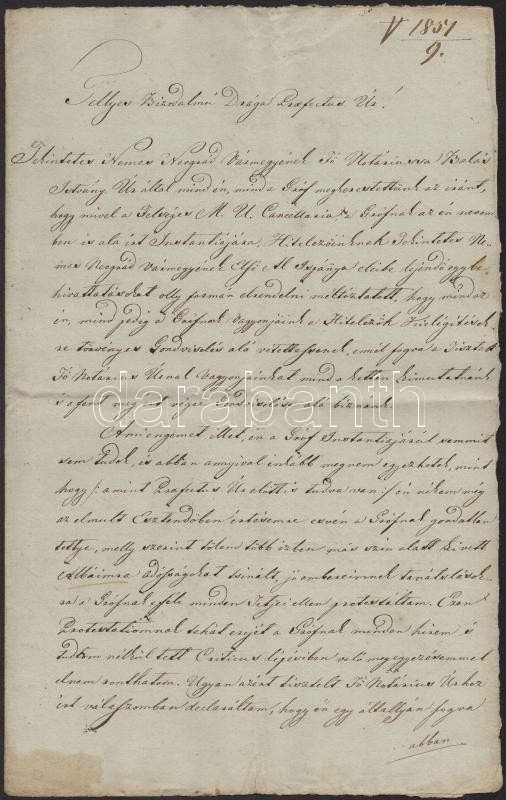 V 1851
9.
Tellyes Bizodalmú Drága Praefectus Úr!
Tekintetes Nemes Neograd Vármegyének Fő Notáriussa Balás
Istvány Úr által mind én, mind a Gróf megkerestettünk az iránt,
hogy mivel a Felséges M. U. Cancellaria Grófnak az én nevem-
ben is alá írt Instantiájára, Hitelezőinknek Tekintetes Ne-
mes Neograd Vármegyének Első Al Ispánya eleibe lejendő egybe-
hivattatásokat olly formán elrendelni méltóztatott, hogy mind az
én, mind pedig a Grófnak Vagyonjaink a Hitelezők Kielégítések-
re törvényes Gondviselés alá vétettessenek, ennél fogva a Tisztelt
Fő Notárius Úrnak Vagyonjainkat mind a ketten kimutatnánk
is a fent megírt végre Gondviselése alá bíznánk.
Ami engemet illet, én a Gróf Instantiájáról semmit
sem tudok, is abban annyival inkább meg nem egyezhetek, mint
hogy /: a mint Praefectus Úr előtt is tudva van :/ én nékem még
az elmúlt Esztendőben értésemre esvén a Grófnak gondatlan
tettye, melly szerint tőlem több ízben más szín alatt kivett
Albáimra adósságokat tsinált, jó embereimnek tanátslások-
ra a Grófnak efféle minden Tettjei ellen protestáltam. Ezen
Protestatiómnak tehát erejét a Grófnak minden hírem é
tudtom nélkül tett Criticus lépésiben való megegyezésemmel
el nem ronthatom. Ugyan azért tisztelt Fő Notárius Úrhoz
írt válaszomban declaráltam, hogy én egy általlyán fogva
abban
darabanth